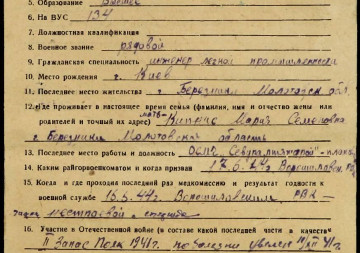 5. Образование высшее
6. На ВУС 134
7. Должностная квалификация
8. Военное звание рядовой
9. Гражданская специальность инженер легкой промышленности
10. Место рождения г. Киев
11. Последнее место жительства г. Березники Молотовск. обл.
12. Где проживает в настоящее время семья (фамилия, имя и отчество жены или
родителей и точный их адрес) мать- Мария Семеновна
г. Березники Молотовской области
13. Последнее место работы и должность "Севуралтяж"
14. Каким райгорвоенкоматом и когда призван 17.6.44г. Ворошиловск. РВК
15. Когда и где проходил последний раз медкомиссию и результат годности к
военной службе 15.5.44г. Ворошиловским РВК-
годен
16. Участие в Отечественной войне (в составе какой последней части в качестве
II Запас Полк 1941г. по болезни уволен